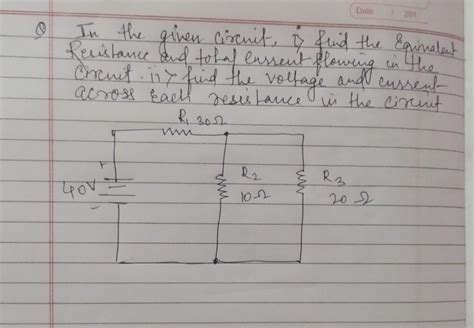 Date 201
Q In the given circuit, i> find the Equivalent
Resistance and total current flowing in the
circuit. ii> find the voltage and current
across each resistance in the circuit
R1 30Ω
+
40V
-
R2
10Ω
R3
20 Ω